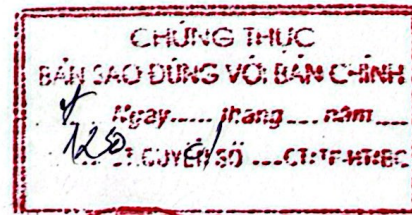 CHỨNG THỰC
BẢN SAO ĐÚNG VỚI BẢN CHÍNH
Ngày..... tháng.... năm....
120 QUYỂN SỐ ....CT:TP-HT:BC